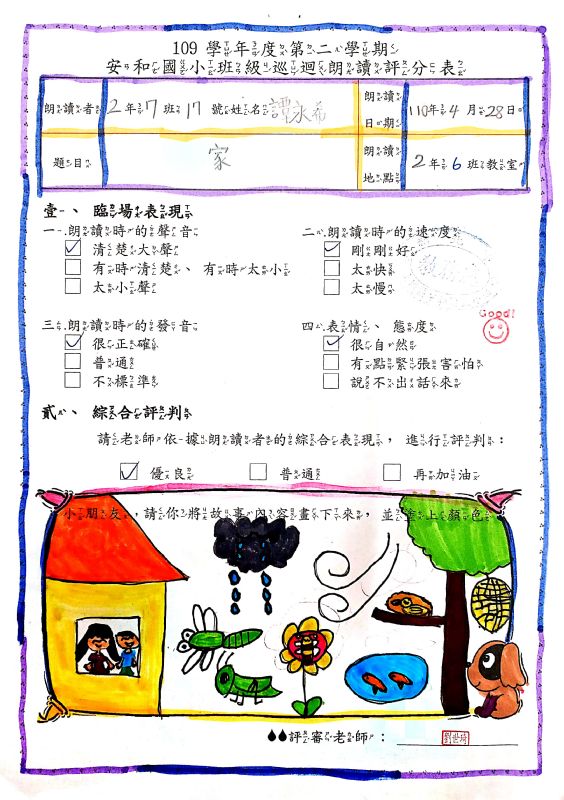 109 學年度第二學期
安和國小班級巡迴朗讀評分表
朗讀者 2年7班17號姓名 譚永希 朗讀日期 110年4月28日
題目 家 朗讀地點 2年6班教室
壹、臨場表現
一.朗讀時的聲音 二.朗讀時的速度
☑清楚大聲 ☑剛剛好
□有時清楚、有時太小 □太快
□太小聲 □太慢
Good!
三.朗讀時的發音 四.表情、態度
☑很正確 ☑很自然
□普通 □有點緊張害怕
□不標準 □說不出話來
貳、綜合評判
請老師依據朗讀者的綜合表現，進行評判：
☑優良 □普通 □再加油
小朋友，請你將故事內容畫下來，並塗上顏色
評審老師：